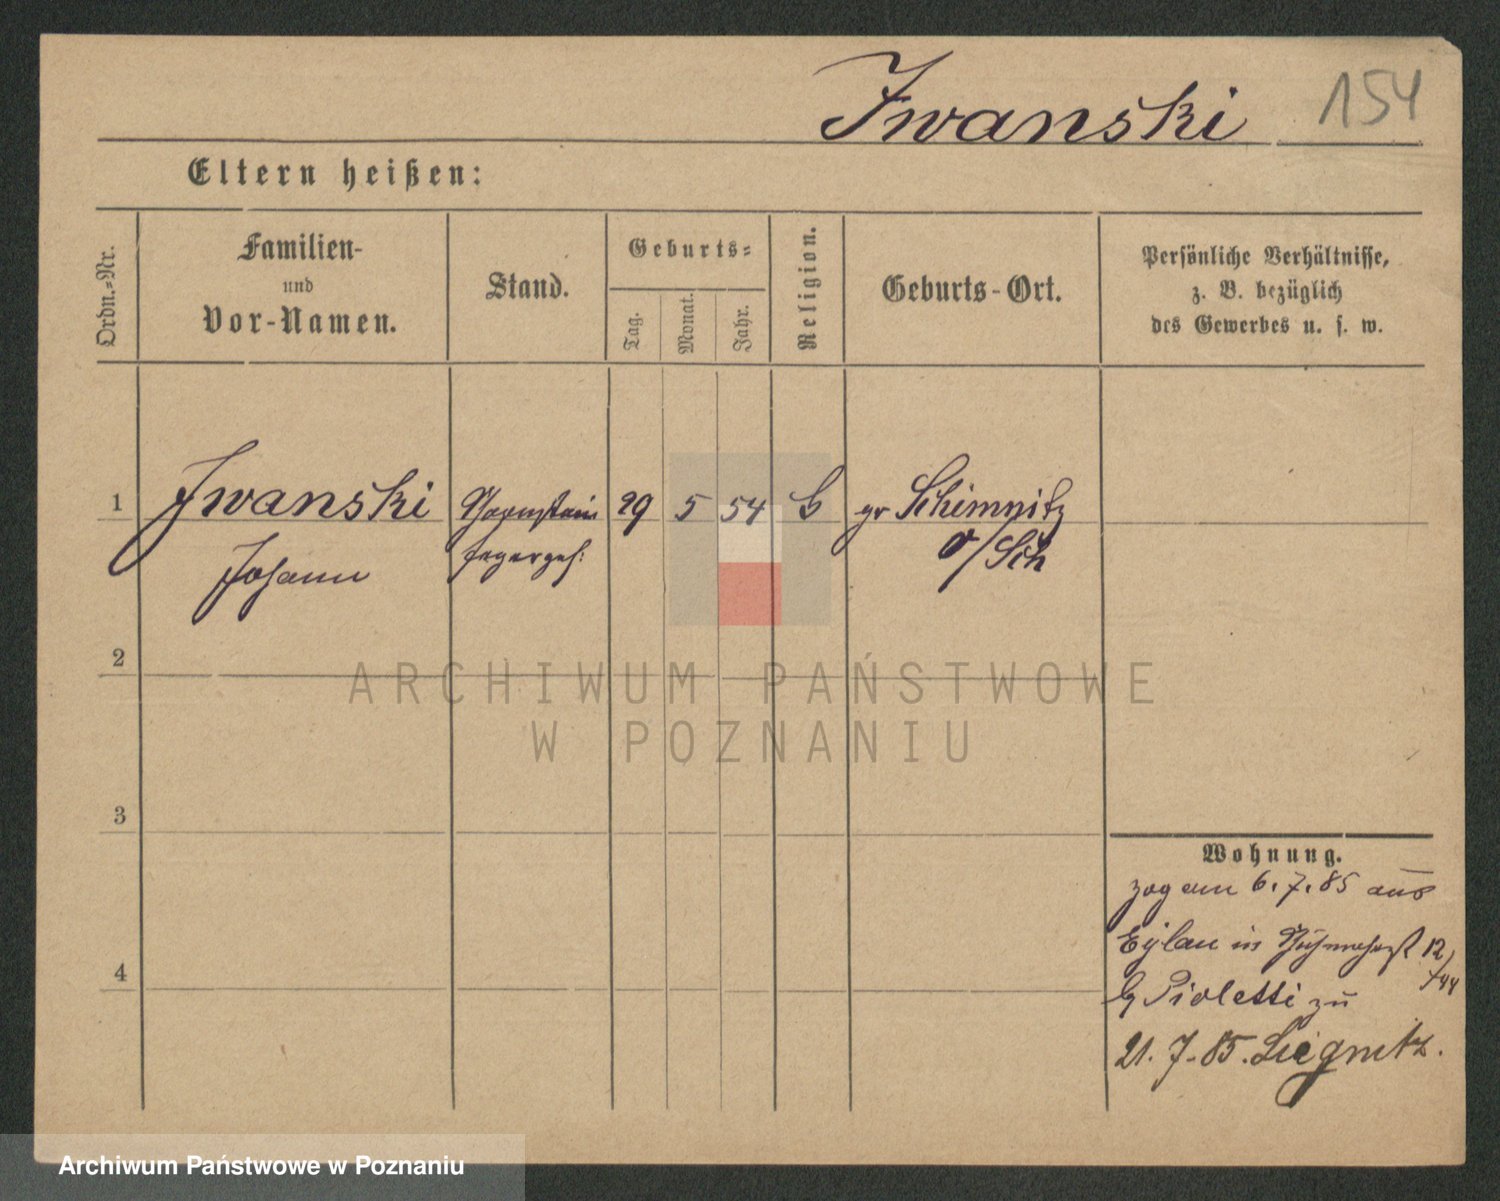 Iwanski 154
Eltern heißen:
Ordn.-Nr.
Familien-
und
Vor-Namen.
Stand.
Geburts-
Tag.
Monat.
Jahr.
Religion.
Geburts-Ort.
Persönliche Verhältnisse,
z. B. bezüglich
des Gewerbes u. s. w.
1 Iwanski 29 5 54 gr Schimnitz
Johann fegergeh: O/Sch
2
3
4
Wohnung.
zog am 6.7.85 aus
Eylau in 12/
Pioletti zu
21.7.85. Liegnitz.
ARCHIWUM PAŃSTWOWE
W POZNANIU
Archiwum Państwowe w Poznaniu